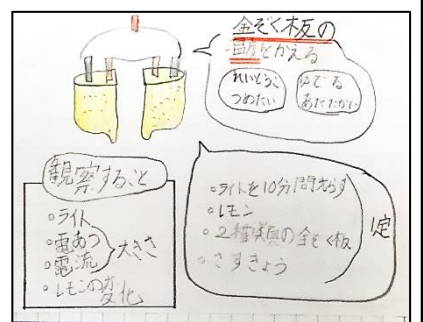 金ぞく板の
温度をかえる
れいとうこ
つめたい
ゆでる
あたたかい
観察すること
。ライト
。電あつ
。電流
大きさ
。レモンの変化
。ライトを10分間光らす
。レモン
。2種類の金ぞく板
。さすきょう